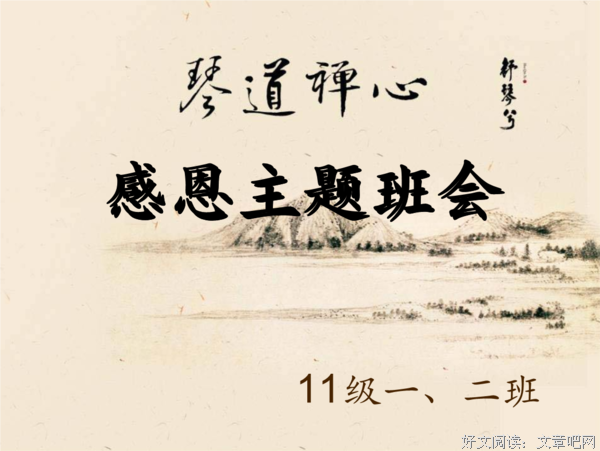 琴道禅心
感恩主题班会
11级一、二班
好文阅读：文章吧网